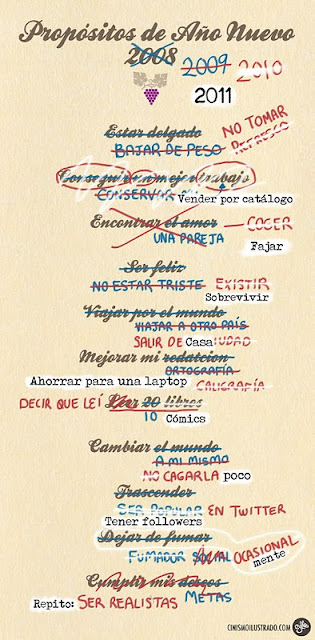 Propósitos de Año Nuevo
2008 2009 2010
2011
Estar delgado NO TOMAR
BAJAR DE PESO REFRESCO
Conseguir un mejor trabajo
CONSERVAR Vender por catálogo
Encontrar el amor COGER
UNA PAREJA Fajar
Ser feliz
NO ESTAR TRISTE EXISTIR
Sobrevivir
Viajar por el mundo
VIAJAR A OTRO PAÍS
SALIR DE Casa CIUDAD
Mejorar mi redatcion
ORTOGRAFÍA
Ahorrar para una laptop CALIGRAFÍA
DECIR QUE LEÍ Leer 20 libros
10 Cómics
Cambiar el mundo
A MI MISMO
NO CAGARLA poco
Trascender
SER POPULAR EN TWITTER
Tener followers
Dejar de fumar
FUMADOR SOCIAL OCASIONAL
mente
Cumplir mis deseos
METAS
Repito: SER REALISTAS
CINISMOILUSTRADO.COM